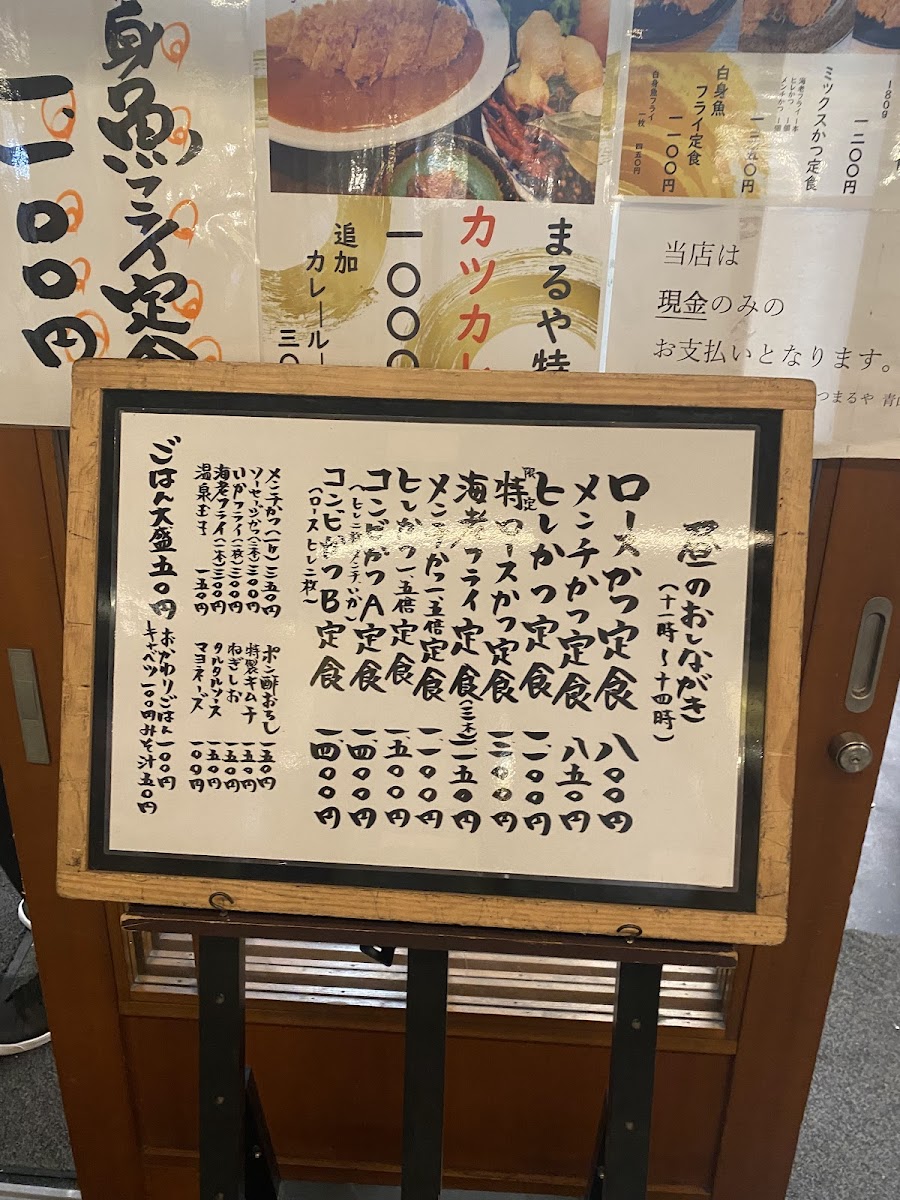 身魚フライ定食
一、一〇〇円
まるや特
カツカレ
一〇〇〇
追加
カレールー
三〇
ミックスかつ定食
海老フライ一本
ヒレかつ一個
メンチかつ一個
一二〇〇円
白身魚
フライ定食
一一〇〇円
白身魚フライ 一枚 四五〇円
180g
当店は
現金のみの
お支払いとなります。
つまるや 青
昼のおしながき
(十一時〜十四時)
ロースかつ定食 八〇〇円
メンチかつ定食 八五〇円
ヒレかつ定食 一、一〇〇円
限定 特ロースかつ定食 一、三〇〇円
海老フライ定食(三本) 一、一五〇円
メンチかつ一、五倍定食 一、一〇〇円
ヒレかつ一、五倍定食 一、五〇〇円
コンビかつA定食 一、四〇〇円
(ヒレ二、メンチ、いか)
コンビかつB定食 一、四〇〇円
(ロース、ヒレ二枚)
メンチかつ(一ヶ)三五〇円
ソーセージかつ(二本)三〇〇円
いかフライ(一枚)三〇〇円
海老フライ(一本)三〇〇円
温泉玉子 一五〇円
ポン酢おろし 一五〇円
特製キムチ 一五〇円
ねぎしお 一五〇円
タルタルソース 一五〇円
マヨネーズ 一〇〇円
ごはん大盛五〇円
おかわりごはん一〇〇円
キャベツ一〇〇円みそ汁五〇円